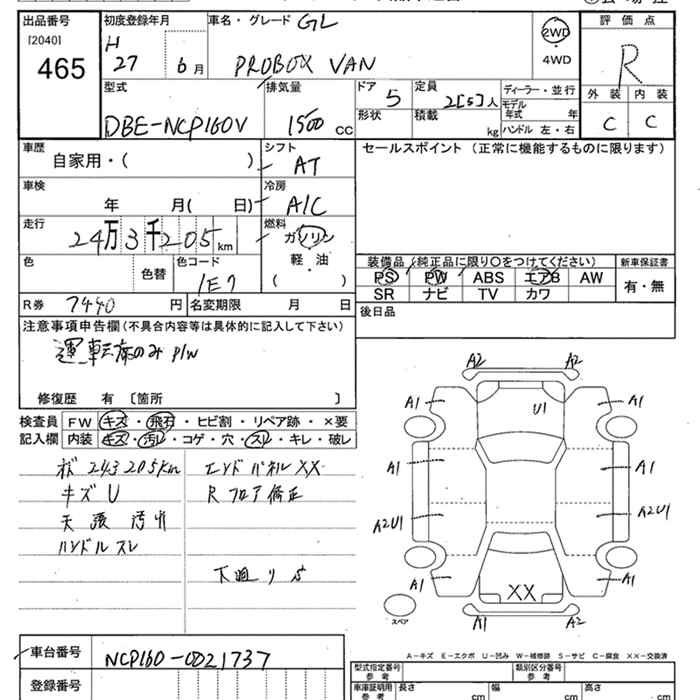 出品番号
[2040]
465
初度登録年月
H
27 6月
車名・グレード GL
PROBOX VAN
2WD
・
4WD
評価点
R
外装 内装
C C
型式
DBE-NCP160V
排気量
1500 CC
ドア 5
形状
定員 2[5]人
積載 kg
ディーラー・並行
モデル
年式 年
ハンドル 左・右
車歴
自家用・( )
シフト
AT
セールスポイント(正常に機能するものに限ります)
車検
年 月( 日)
冷房
A/C
走行
24万3千205km
燃料
ガソリン
・
軽・油
( )
色
色替
色コード
1E7
装備品(純正品に限り○をつけてください)
PS PW ABS エアB AW
SR ナビ TV カワ
新車保証書
有・無
R券 7440円
名変期限 月 日
後日品
注意事項申告欄(不具合内容等は具体的に記入して下さい)
運転席のみ P/W
修復歴 有 〔箇所 〕
検査員
記入欄
FW キズ・飛石・ヒビ割・リペア跡・×要
内装 キズ・汚レ・コゲ・穴・スレ・キレ・破レ
243205km エンドパネルXX
キズ U Rフロア修正
天張汚レ
ハンドルスレ
下廻りS
A2 A2
A1 U1 A1
A1 A1
A2U1 A2U1
A1 XX A1
スペア
A1 A2
A-キズ E-エクボ U-凹み W-補修跡 S-サビ C-腐食 XX-交換済
車台番号 NCP160-0021737
登録番号
型式指定番号
参考
類別区分番号
参考
車庫証明用
参考
長さ cm 幅 cm 高さ cm